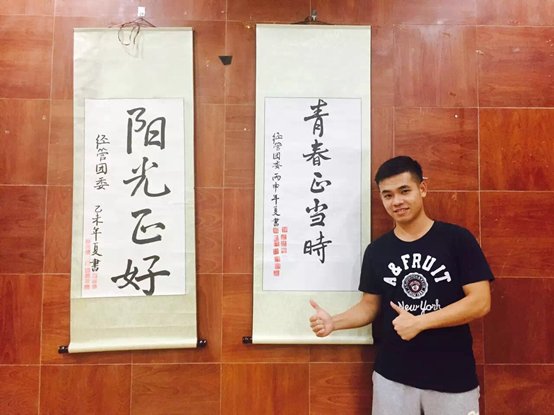 阳光正好
经管团委 乙未年夏書
青春正当時
经管团委 丙申年夏書
A&FRUIT
New York